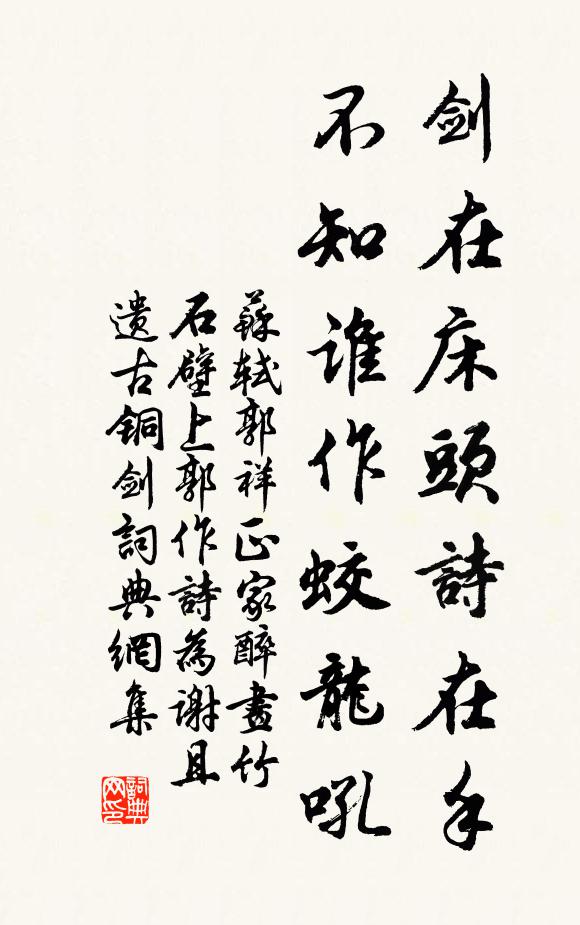 剑在床頭詩在手
不知谁作蛟龍吼
蘇軾郭祥正家醉畫竹
石壁上郭作詩為谢且
遺古銅剑詞典網集
詞典网印